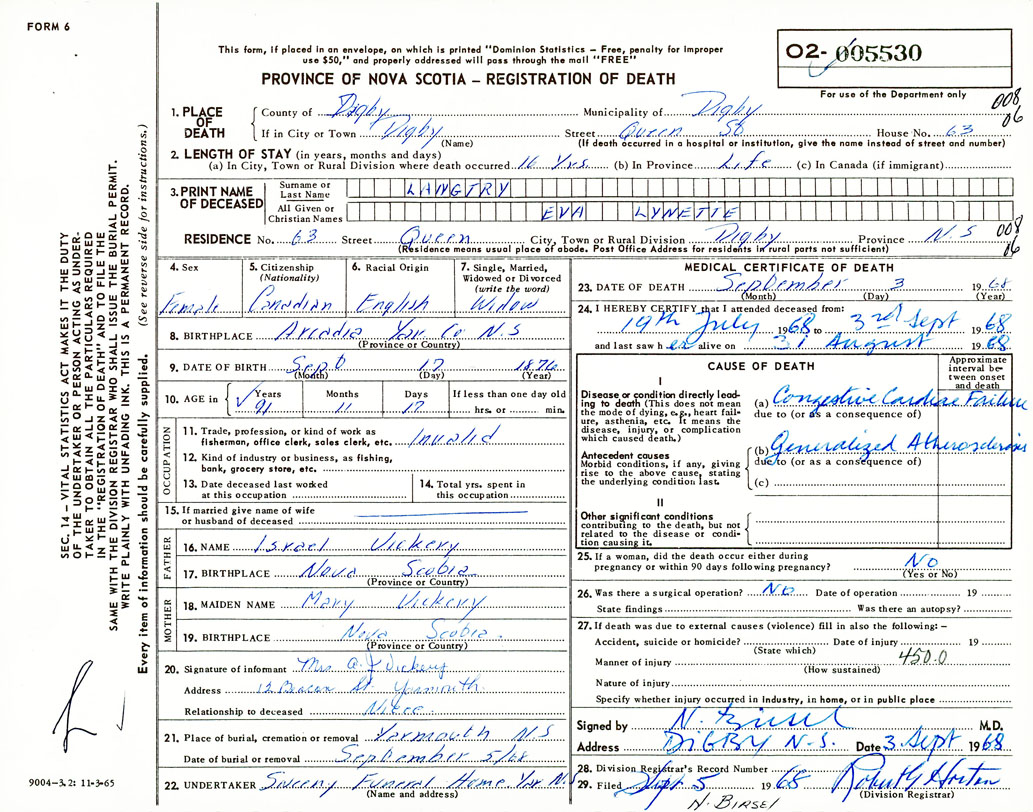 FORM 6
This form, if placed in an envelope, on which is printed "Dominion Statistics – Free, penalty for improper
use $50," and properly addressed will pass through the mail "FREE"
PROVINCE OF NOVA SCOTIA – REGISTRATION OF DEATH
02- 005530
For use of the Department only
008
06
1. PLACE OF DEATH
County of Digby Municipality of Digby
If in City or Town Digby Street Queen St House No. 63
(Name) (If death occurred in a hospital or institution, give the name instead of street and number)
2. LENGTH OF STAY (in years, months and days)
(a) In City, Town or Rural Division where death occurred 16 Yrs. (b) In Province Life (c) In Canada (if immigrant)
3. PRINT NAME OF DECEASED
Surname or Last Name LANGTRY
All Given or Christian Names EVA LYNETTE
RESIDENCE No. 63 Street Queen City, Town or Rural Division Digby Province N.S
(Residence means usual place of abode. Post Office Address for residents in rural parts not sufficient)
008
06
4. Sex Female
5. Citizenship (Nationality) Canadian
6. Racial Origin English
7. Single, Married, Widowed or Divorced (write the word) Widow
8. BIRTHPLACE Arcadia Yar. Co N.S
(Province or Country)
9. DATE OF BIRTH Sept 17 1876
(Month) (Day) (Year)
10. AGE in Years 91 Months 11 Days 17 If less than one day old hrs. or min.
OCCUPATION
11. Trade, profession, or kind of work as fisherman, office clerk, sales clerk, etc. Invalid
12. Kind of industry or business, as fishing, bank, grocery store, etc.
13. Date deceased last worked at this occupation
14. Total yrs. spent in this occupation
15. If married give name of wife or husband of deceased
FATHER
16. NAME Israel Vickery
17. BIRTHPLACE Nova Scotia
(Province or Country)
MOTHER
18. MAIDEN NAME Mary Vickery
19. BIRTHPLACE Nova Scotia.
(Province or Country)
20. Signature of informant Mrs A. J Vickery
Address 12 Beacon St. Yarmouth
Relationship to deceased Niece
21. Place of burial, cremation or removal Yarmouth N S
Date of burial or removal September 5/68
22. UNDERTAKER Sweeny Funeral Home Yar N.
(Name and address)
MEDICAL CERTIFICATE OF DEATH
23. DATE OF DEATH September 3 1968
(Month) (Day) (Year)
24. I HEREBY CERTIFY that I attended deceased from:
19th July 1968 to 3rd Sept 1968
and last saw her alive on 31 August 1968
CAUSE OF DEATH
Approximate interval between onset and death
I
Disease or condition directly leading to death (This does not mean the mode of dying, e.g., heart failure, asthenia, etc. It means the disease, injury, or complication which caused death.)
(a) Congestive Cardiac Failure
due to (or as a consequence of)
Antecedent causes
Morbid conditions, if any, giving rise to the above cause, stating the underlying condition last.
(b) Generalized Atherosclerosis
due to (or as a consequence of)
(c)
II
Other significant conditions contributing to the death, but not related to the disease or condition causing it.
25. If a woman, did the death occur either during pregnancy or within 90 days following pregnancy? No
(Yes or No)
26. Was there a surgical operation? No Date of operation 19
State findings Was there an autopsy?
27. If death was due to external causes (violence) fill in also the following: –
Accident, suicide or homicide? Date of injury 19
(State which)
Manner of injury 450.0
(How sustained)
Nature of injury
Specify whether injury occurred in industry, in home, or in public place
Signed by N. Birsel M.D.
Address DIGBY N.S. Date 3 Sept 1968
28. Division Registrar's Record Number
29. Filed Sept 5 1968 Robert G Horton
(Division Registrar)
N. BIRSEL
SEC. 14 – VITAL STATISTICS ACT MAKES IT THE DUTY
OF THE UNDERTAKER OR PERSON ACTING AS UNDER-
TAKER TO OBTAIN ALL THE PARTICULARS REQUIRED
IN THE "REGISTRATION OF DEATH" AND TO FILE THE
SAME WITH THE DIVISION REGISTRAR WHO SHALL ISSUE THE BURIAL PERMIT.
WRITE PLAINLY WITH UNFADING INK. THIS IS A PERMANENT RECORD.
Every item of information should be carefully supplied. (See reverse side for instructions.)
9004-3.2: 11-3-65